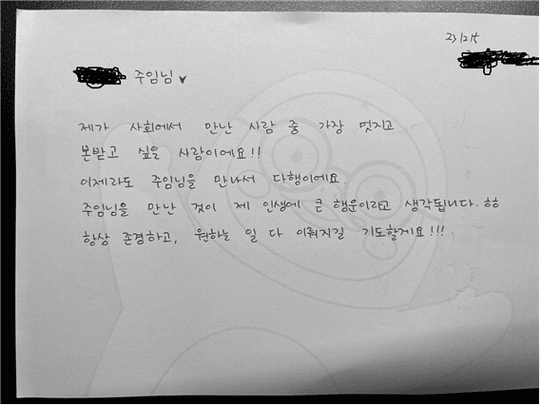 23/2/5
주임님 ♥
제가 사회에서 만난 사람 중 가장 멋지고
본받고 싶을 사람이에요!!
이제라도 주임님을 만나서 다행이에요
주임님을 만난 것이 제 인생에 큰 행운이라고 생각됩니다. ㅎㅎ
항상 존경하고, 원하는 일 다 이뤄지길 기도할게요!!!